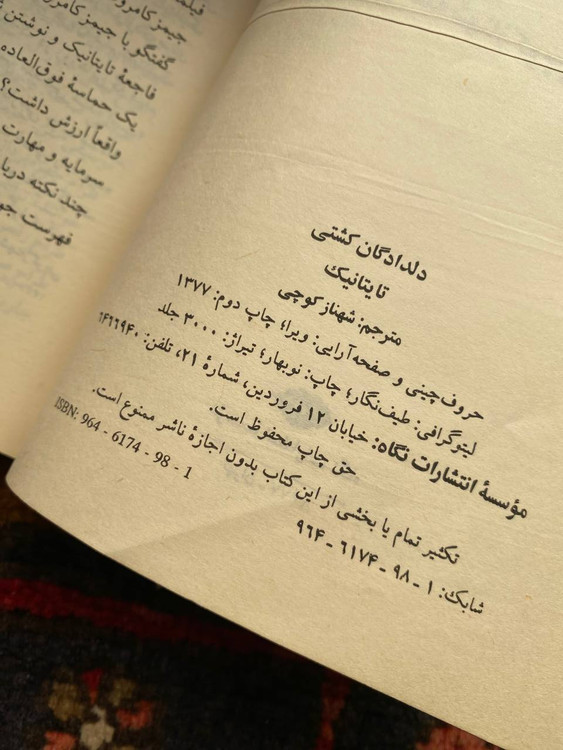 فیلم
جیمز کامرو
گفتگو با جیمز کامرو
فاجعهٔ تایتانیک و نوشتن
یک حماسهٔ فوق‌العاده
واقعاً ارزش داشت؟
سرمایه و مهارت
چند نکته دربا
فهرست جو
دلدادگان کشتی
تایتانیک
مترجم: شهناز کوچی
حروف‌چینی و صفحه‌آرایی: ویرا؛ چاپ دوم: ۱۳۷۷
لیتوگرافی: طیف‌نگار؛ چاپ: نوبهار؛ تیراژ: ۳۰۰۰ جلد
مؤسسهٔ انتشارات نگاه: خیابان ۱۲ فروردین، شمارهٔ ۲۱، تلفن: ۶۴۶۶۹۴۰
حق چاپ محفوظ است.
تکثیر تمام یا بخشی از این کتاب بدون اجازهٔ ناشر ممنوع است.
شابک: ۱ ـ ۹۸ ـ ۶۱۷۴ ـ ۹۶۴
ISBN: 964 - 6174 - 98 - 1